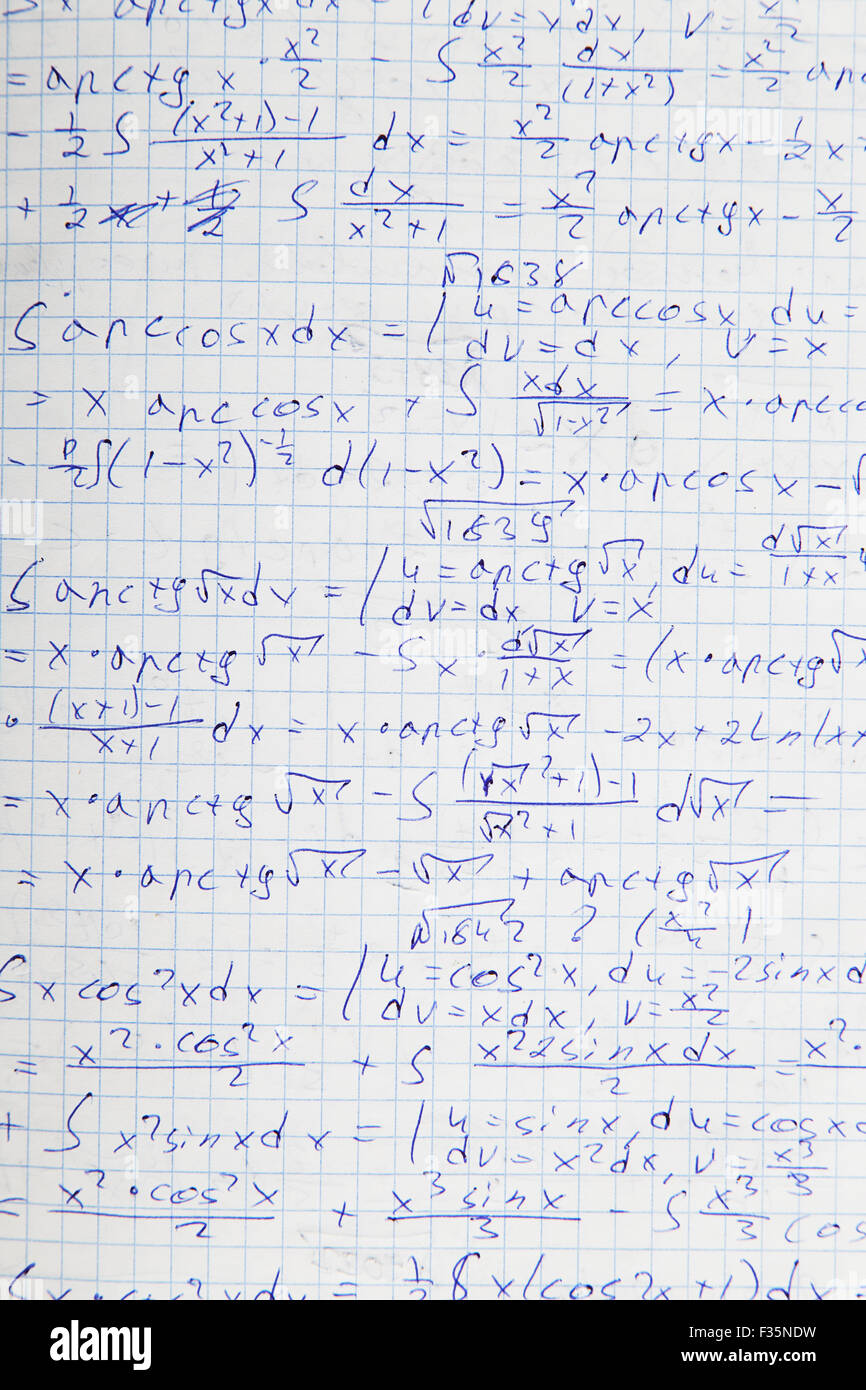 ∫x arctgx dx = ( dv = x dx, v = x²/2
= arctg x · x²/2 - ∫ x²/2 dx/(1+x²) = x²/2 arc
- 1/2 ∫ ((x²+1)-1)/(x²+1) dx = x²/2 arctgx - 1/2 x
+ 1/2 ∫ dx/(x²+1) = x²/2 arctgx - x/2
√1638
∫ arccosx dx = ( u = arccosx, du =
dv = dx, v = x
= x arccosx + ∫ xdx/√(1-x²) = x · arcc
- 1/2 ∫(1-x²)^(-1/2) d(1-x²) = x · arcosx - √
√1639
∫ arctg√x dx = ( u = arctg√x, du = d√x/(1+x)
dv = dx v = x
= x · arctg√x - ∫ x · d√x/(1+x) = (x · arctg√x
· ((x+1)-1)/(x+1) dx = x · arctg√x - 2x + 2Ln(x+
= x · arctg√x - ∫ ((√x²+1)-1)/(√x²+1) d√x =
= x · arctg√x - √x + arctg√x
√1642 ? (x²/4)
∫ x cos²x dx = ( u = cos²x, du = -2sinx d
dv = xdx, v = x²/2
= (x² · cos²x)/2 + ∫ (x² 2sinx dx)/2 = x² ·
+ ∫ x² sinx dx = ( u = sinx, du = cosx
dv = x²dx, v = x³/3
= (x² · cos²x)/2 + (x³ sinx)/3 - ∫ x³/3 cos
∫x · cos²x dx = 1/2 ∫ x(cos2x+1)dx
alamy
Image ID: F35NDW
www.alamy.com